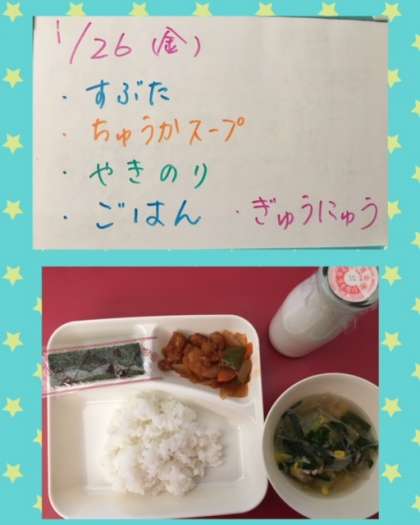 1/26(金)
・すぶた
・ちゅうかスープ
・やきのり
・ごはん ・ぎゅうにゅう